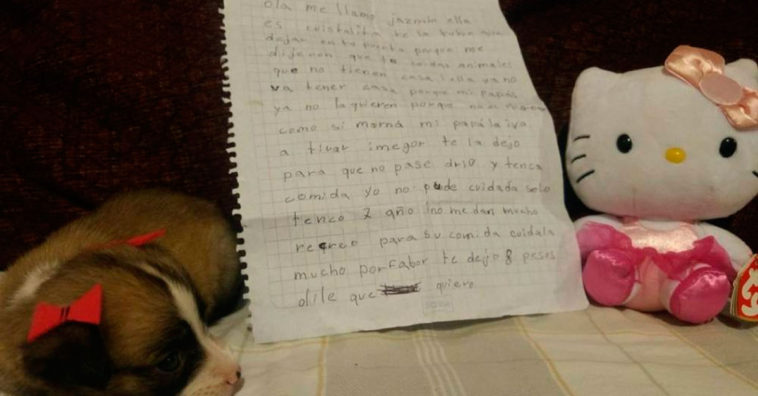 ola me llamo jazmin ella
es cristalita te la tube que
dejar en tu puerta porque me
dijeron que tu cuidas animales
que no tienen casa ella ya no
va tener casa porque mi papás
ya no la quieren porque
como si mamá mi papá la iva
a tirar imegor te la dejo
para que no pase drio y tenca
comida yo no pude cuidada solo
tenco 7 año no me dan mucho
recreo para su comida cuidala
mucho porfabor te dejo 8 pesos
dile que quiero
ty